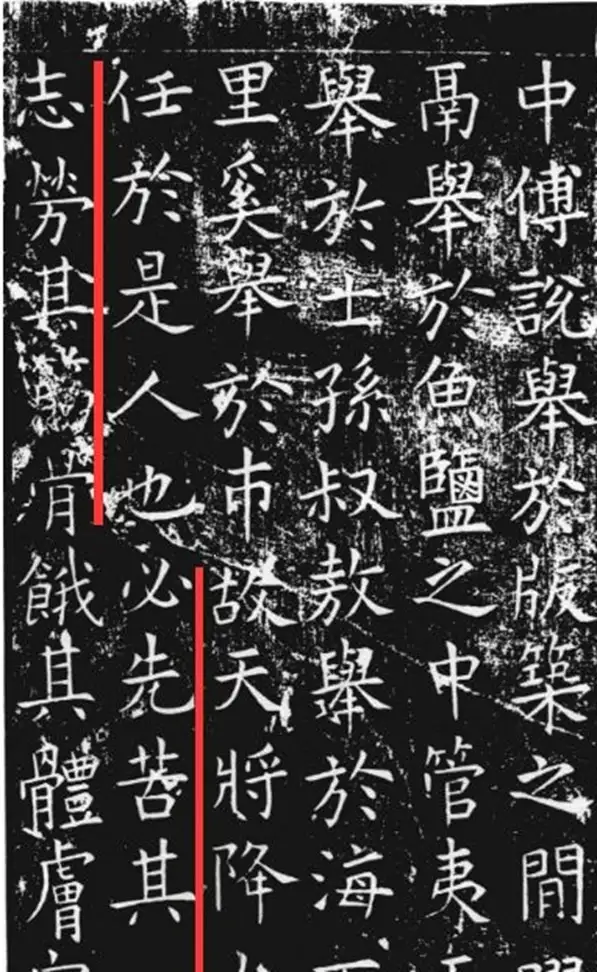 中傅說舉於版築之閒
鬲舉於魚鹽之中管夷
舉於士孫叔敖舉於海
里奚舉於市故天將降
任於是人也必先苦其
志勞其筋骨餓其體膚